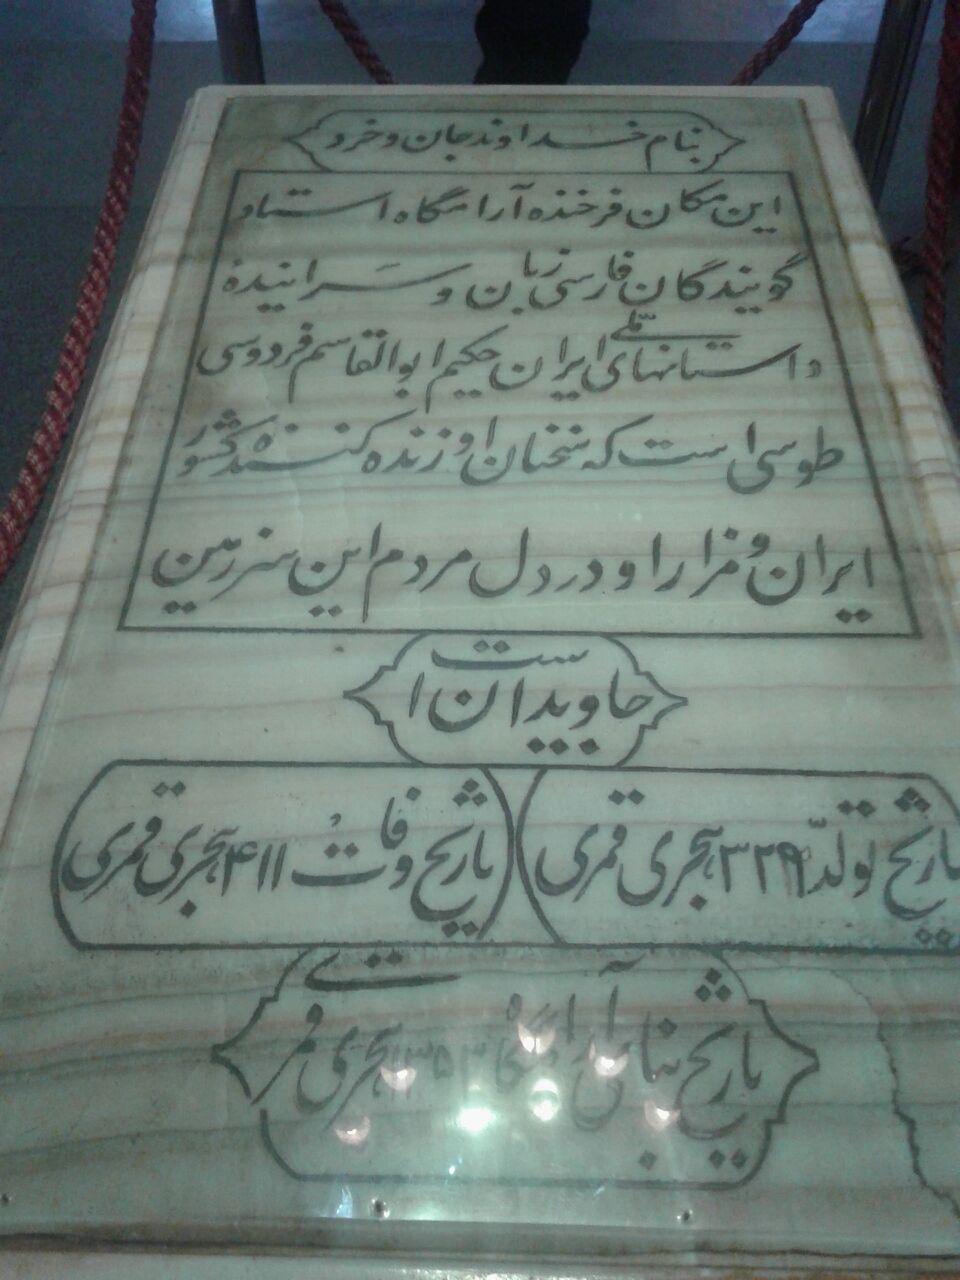 بنام خداوند جان و خرد
این مکان فرخنده آرامگاه استاد
گویندگان فارسی زبان و سَراینده
داستانهای ملّی ایران حکیم ابوالقاسم فردوسی
طوسی است که سخنان او زنده کننده کشور
ایران و مزار او در دل مردم این سرزمین
جاویدان است
تاریخ تولّد ۳۲۹ هجری قمری
تاریخ وفات ۴۱۱ هجری قمری
تاریخ بنای آرامگاه ۱۳۵۳ هجری قمری